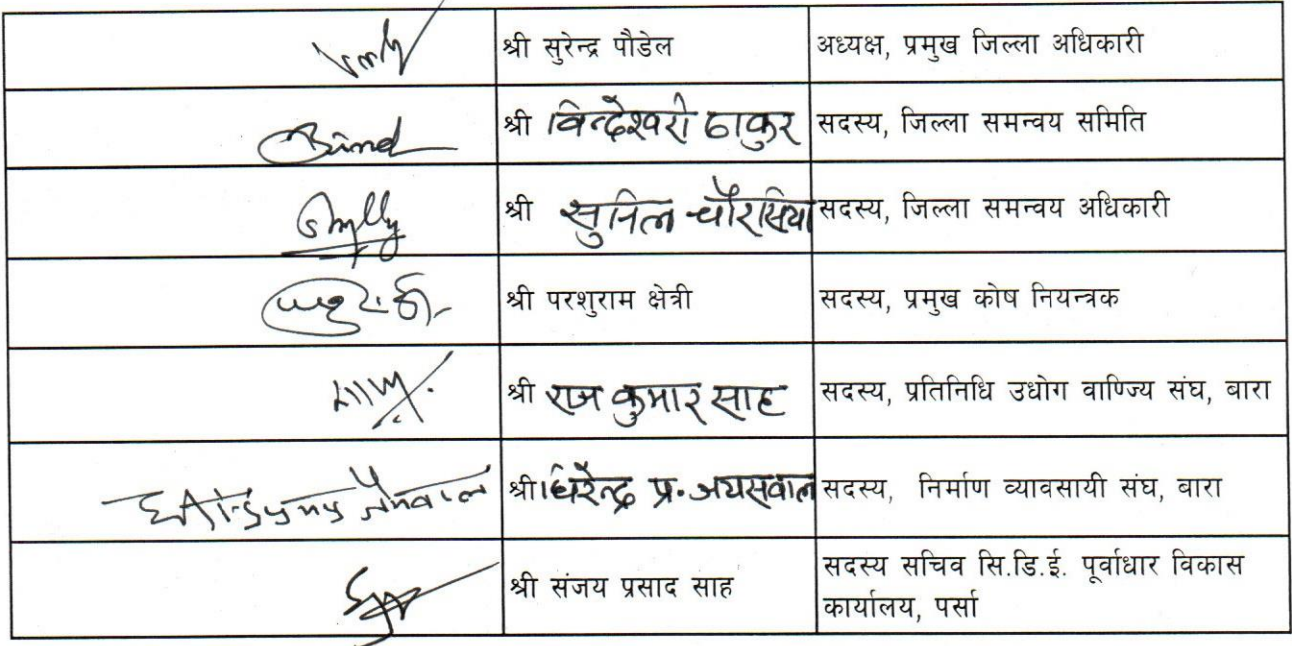 श्री सुरेन्द्र पौडेल अध्यक्ष, प्रमुख जिल्ला अधिकारी
श्री विन्देश्वरी ठाकुर सदस्य, जिल्ला समन्वय समिति
श्री सुनिल चौरसिया सदस्य, जिल्ला समन्वय अधिकारी
श्री परशुराम क्षेत्री सदस्य, प्रमुख कोष नियन्त्रक
श्री राज कुमार साह सदस्य, प्रतिनिधि उधोग वाणिज्य संघ, बारा
श्री धिरेन्द्र प्र. जयसवाल सदस्य, निर्माण व्यावसायी संघ, बारा
श्री संजय प्रसाद साह सदस्य सचिव सि.डि.ई. पूर्वाधार विकास
कार्यालय, पर्सा